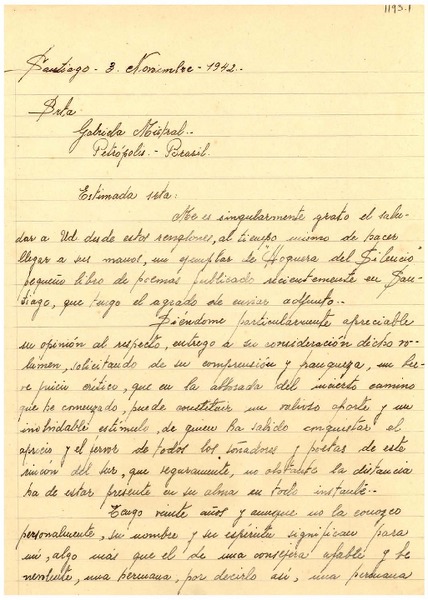 1193.1
Santiago - 3. Noviembre - 1942.-
Srta.
Gabriela Mistral.-
Petrópolis.- Brasil.
Estimada srta:
Me es singularmente grato el salu-
dar a Ud desde estos renglones, al tiempo mismo de hacer
llegar a sus manos, un ejemplar de "Hoguera del Silencio"
pequeño libro de poemas publicado recientemente en San-
tiago, que tengo el agrado de enviar adjunto.-
Siéndome particularmente apreciable
su opinión al respecto, entrego a su consideración dicho vo-
lúmen, solicitando de su comprensión y franqueza, un bre-
ve juicio crítico, que en la alborada del incierto camino
que he comenzado, puede constituir un valioso aporte y un
inolvidable estímulo, de quien ha sabido conquistar el
aprecio y el fervor de todos los soñadores y poetas de este
rincon del sur, que seguramente, no obstante la distancia
ha de estar presente en su alma en todo instante.-
Tengo veinte años y aunque no la conozco
personalmente, su nombre y su espíritu significan para
mí, algo más que el de una consejera afable y be
nevolente, una hermana, por decirlo así, una hermana